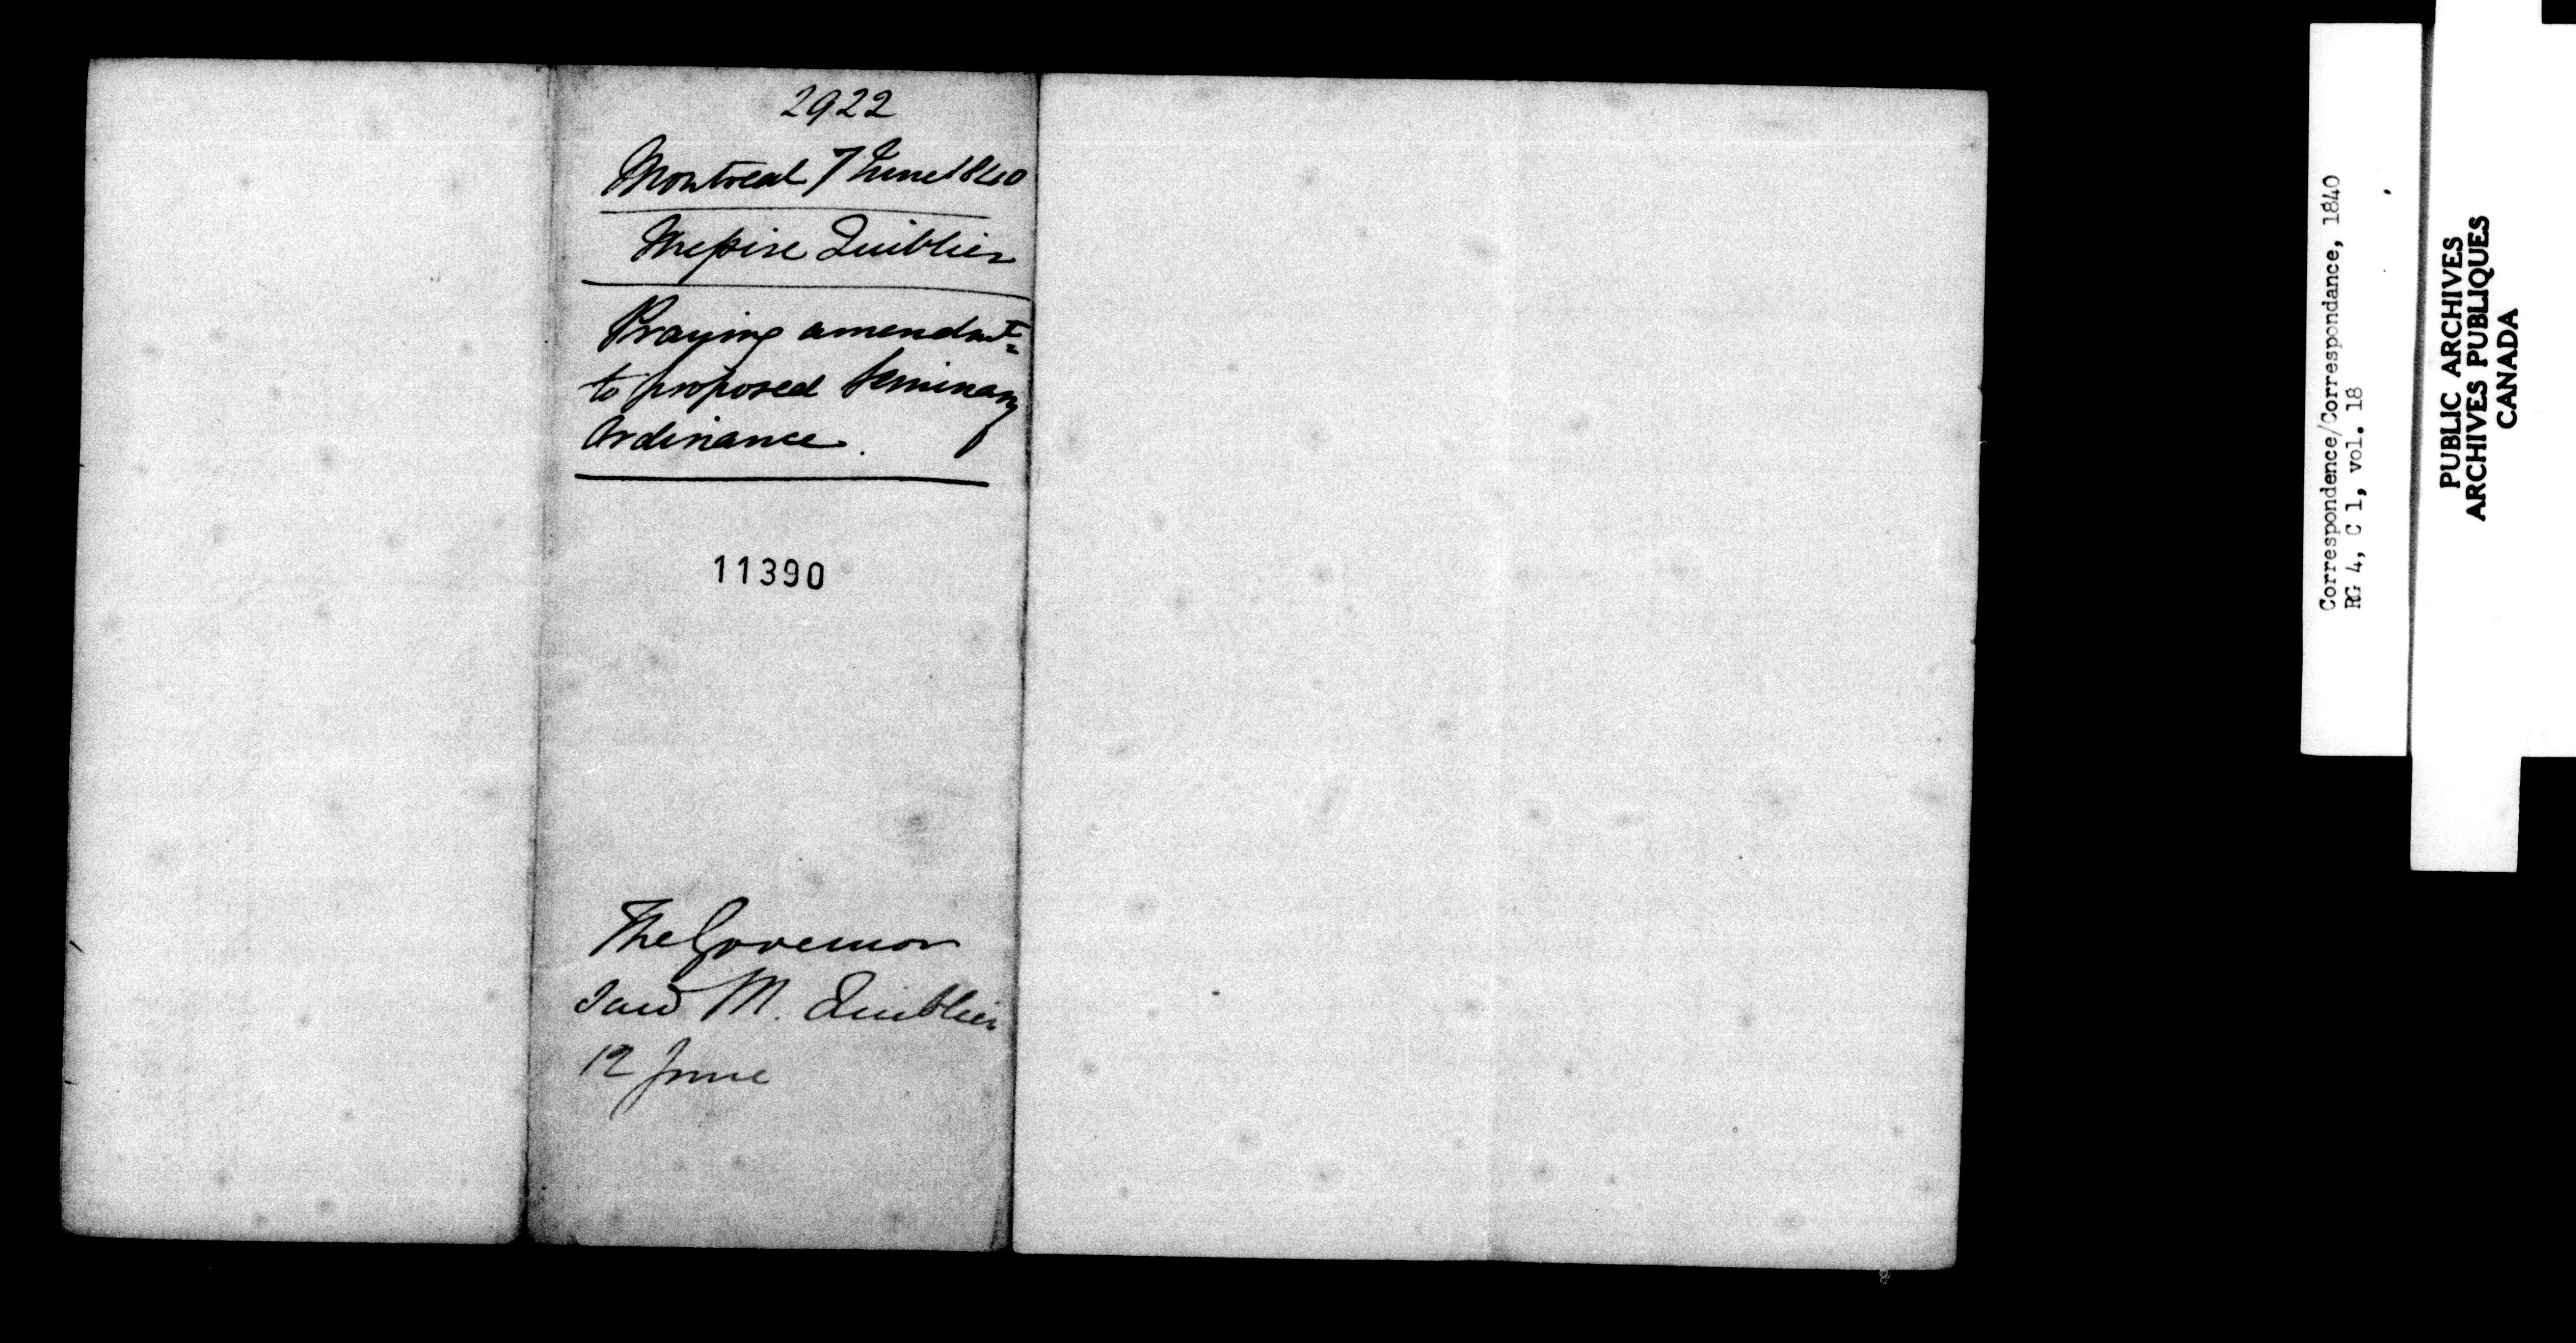 2922
Montreal 7 June 1840
Messire Quiblier
Praying amendmt
to proposed Seminary
Ordinance.
11390
The Governor
saw M. Quiblier
12 June
Correspondence/Correspondance, 1840
RG 4, C 1, vol. 18
PUBLIC ARCHIVES
ARCHIVES PUBLIQUES
CANADA